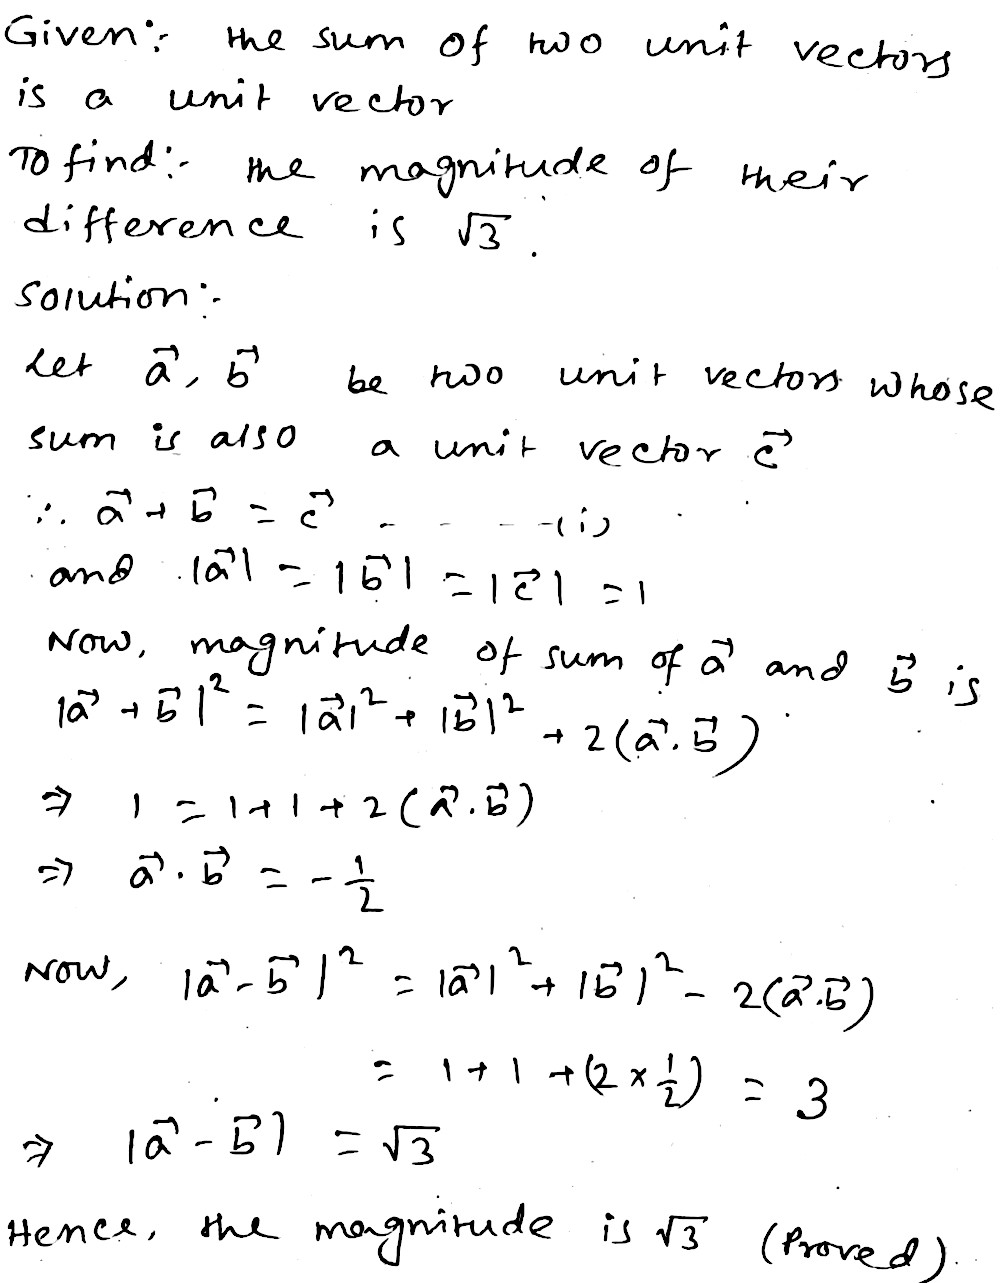 Given:- the sum of two unit vectors
is a unit vector
To find:- the magnitude of their
difference is √3.
Solution:-
Let a⃗, b⃗ be two unit vectors whose
sum is also a unit vector c⃗
∴ a⃗ + b⃗ = c⃗ - - - - -(i)
and |a⃗| = |b⃗| = |c⃗| = 1
Now, magnitude of sum of a⃗ and b⃗ is
|a⃗ + b⃗|² = |a⃗|² + |b⃗|² + 2(a⃗.b⃗)
⇒ 1 = 1+1+2(a⃗.b⃗)
⇒ a⃗.b⃗ = -1/2
Now, |a⃗-b⃗|² = |a⃗|² + |b⃗|² - 2(a⃗.b⃗)
= 1+1+(2×1/2) = 3
⇒ |a⃗-b⃗| = √3
Hence, the magnitude is √3 (Proved).